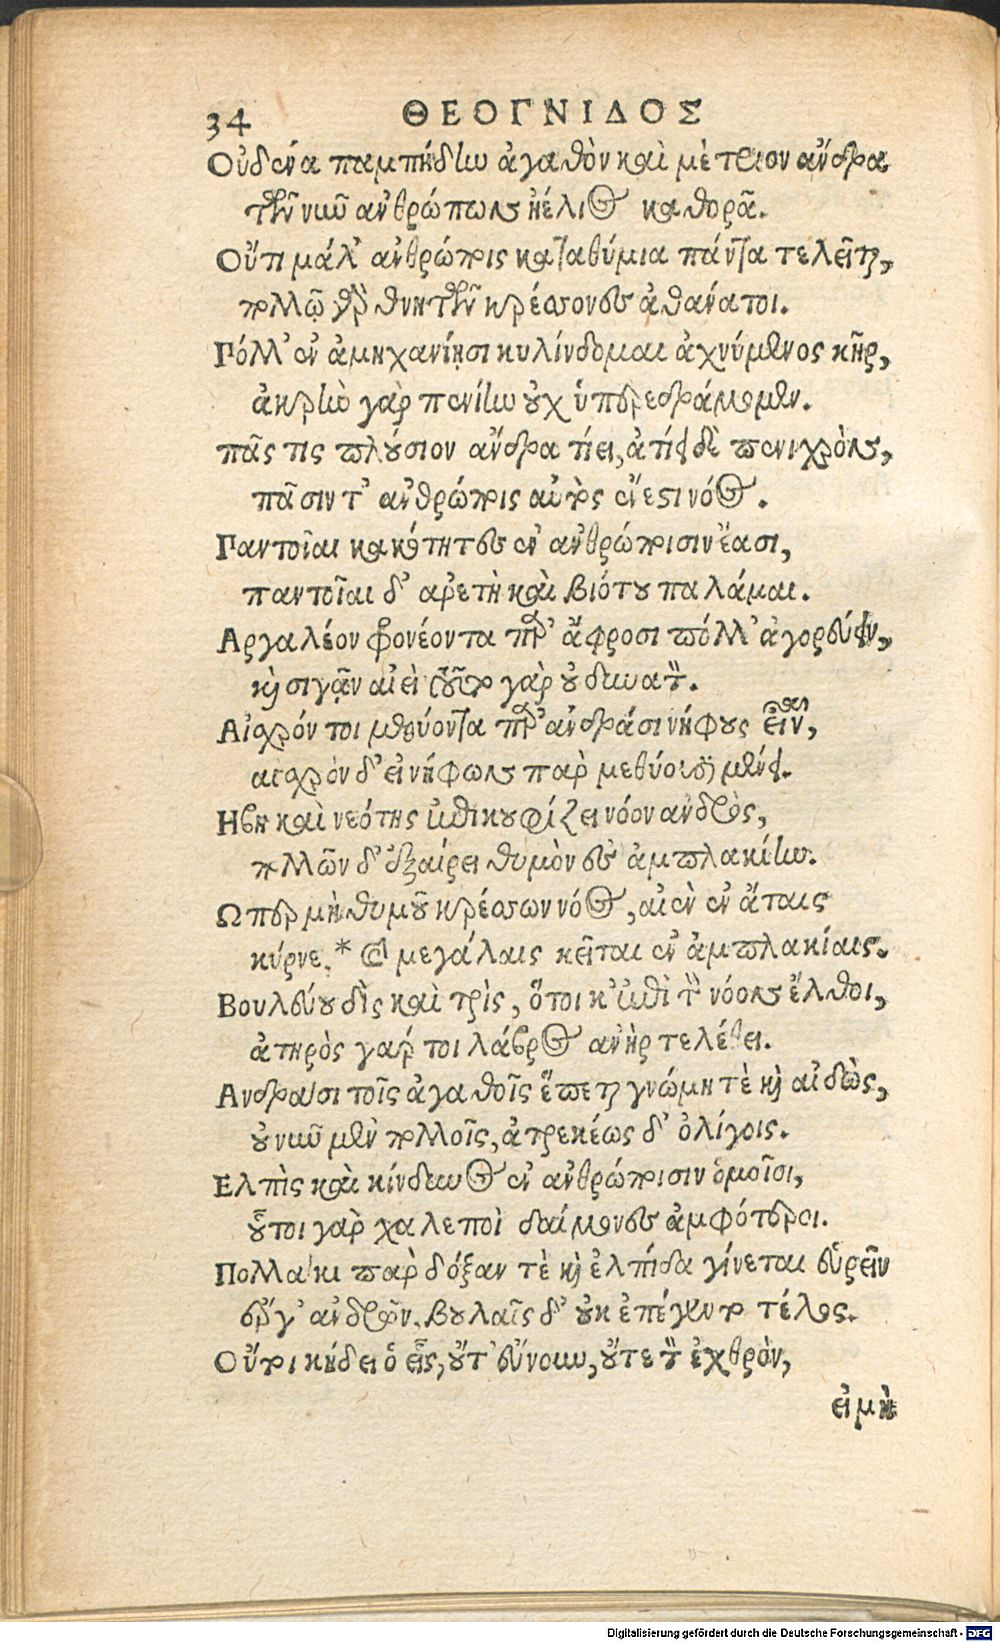 34 ΘΕΟΓΝΙΔΟΣ
Οὐδένα παμπήδην ἀγαθὸν καὶ μέτριον ἄνδρα
τῶν νῦν ἀνθρώπων ἠέλιος καθορᾷ.
Οὔτι μάλ' ἀνθρώποις καταθύμια πάντα τελεῖται,
πολλῷ γὰρ θνητῶν κρέσσονες ἀθάνατοι.
Πόλλ' ἐν ἀμηχανίῃσι κυλίνδομαι ἀχνύμενος κῆρ,
ἀκρὴν γὰρ πενίην οὐχ ὑπερεδράμομεν.
πᾶς τις πλούσιον ἄνδρα τίει, ἀτίει δὲ πενιχρὸν,
πᾶσιν τ' ἀνθρώποις αὐτὸς ἔνεστι νόος.
Παντοῖαι κακότητες ἐν ἀνθρώποισιν ἔασι,
παντοῖαι δ' ἀρετὴ καὶ βιότου παλάμαι.
Αργαλέον φρονέοντα παρ' ἄφροσι πόλλ' ἀγορεύειν,
καὶ σιγᾷν αἰεὶ τοῦτο γὰρ οὐ δυνατόν.
Αἰσχρόν τοι μεθύοντα παρ' ἀνδράσι νήφουσι εἶναι,
αἰσχρὸν δ' εἰ νήφων παρ μεθύουσι μένει.
Ηβη καὶ νεότης ἐπικουφίζει νόον ἀνδρὸς,
πολλῶν δ' ἐξαίρει θυμὸν ἐς ἀμπλακίην.
Ω περ μὴ θυμοῦ κρέσσων νόος, αἰὲν ἐν ἄταις
κύρνε, * καὶ μεγάλαις κεῖται ἐν ἀμπλακίαις.
Βουλεύου δὶς καὶ τρὶς, ὅτοι κ' ἐπὶ τὸν νόον ἔλθοι,
ἀτηρὸς γάρ τοι λάβρος ἀνὴρ τελέθει.
Ανδράσι τοῖς ἀγαθοῖς ἕπεται γνώμη τὲ καὶ αἰδὼς,
οἳ νῦν μὲν πολλοῖς, ἀτρεκέως δ' ὀλίγοις.
Ελπὶς καὶ κίνδυνος ἐν ἀνθρώποισιν ὁμοῖσι,
οὗτοι γὰρ χαλεποὶ δαίμονες ἀμφότεροι.
Πολλάκι παρ δόξαν τὲ καὶ ἐλπίδα γίνεται εὑρεῖν
ἔργ' ἀνδρῶν, βουλαῖς δ' οὐκ ἐπέγεντο τέλος.
Οὔτοι κήδει ὁ εἷς, οὔτ' εὔνουν, οὔτε τὸν ἐχθρὸν,
εἰ μὴ
Digitalisierung gefördert durch die Deutsche Forschungsgemeinschaft - DFG